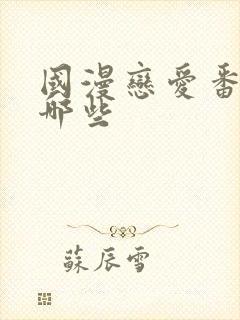 國漫戀愛番
哪些
蘇辰雪